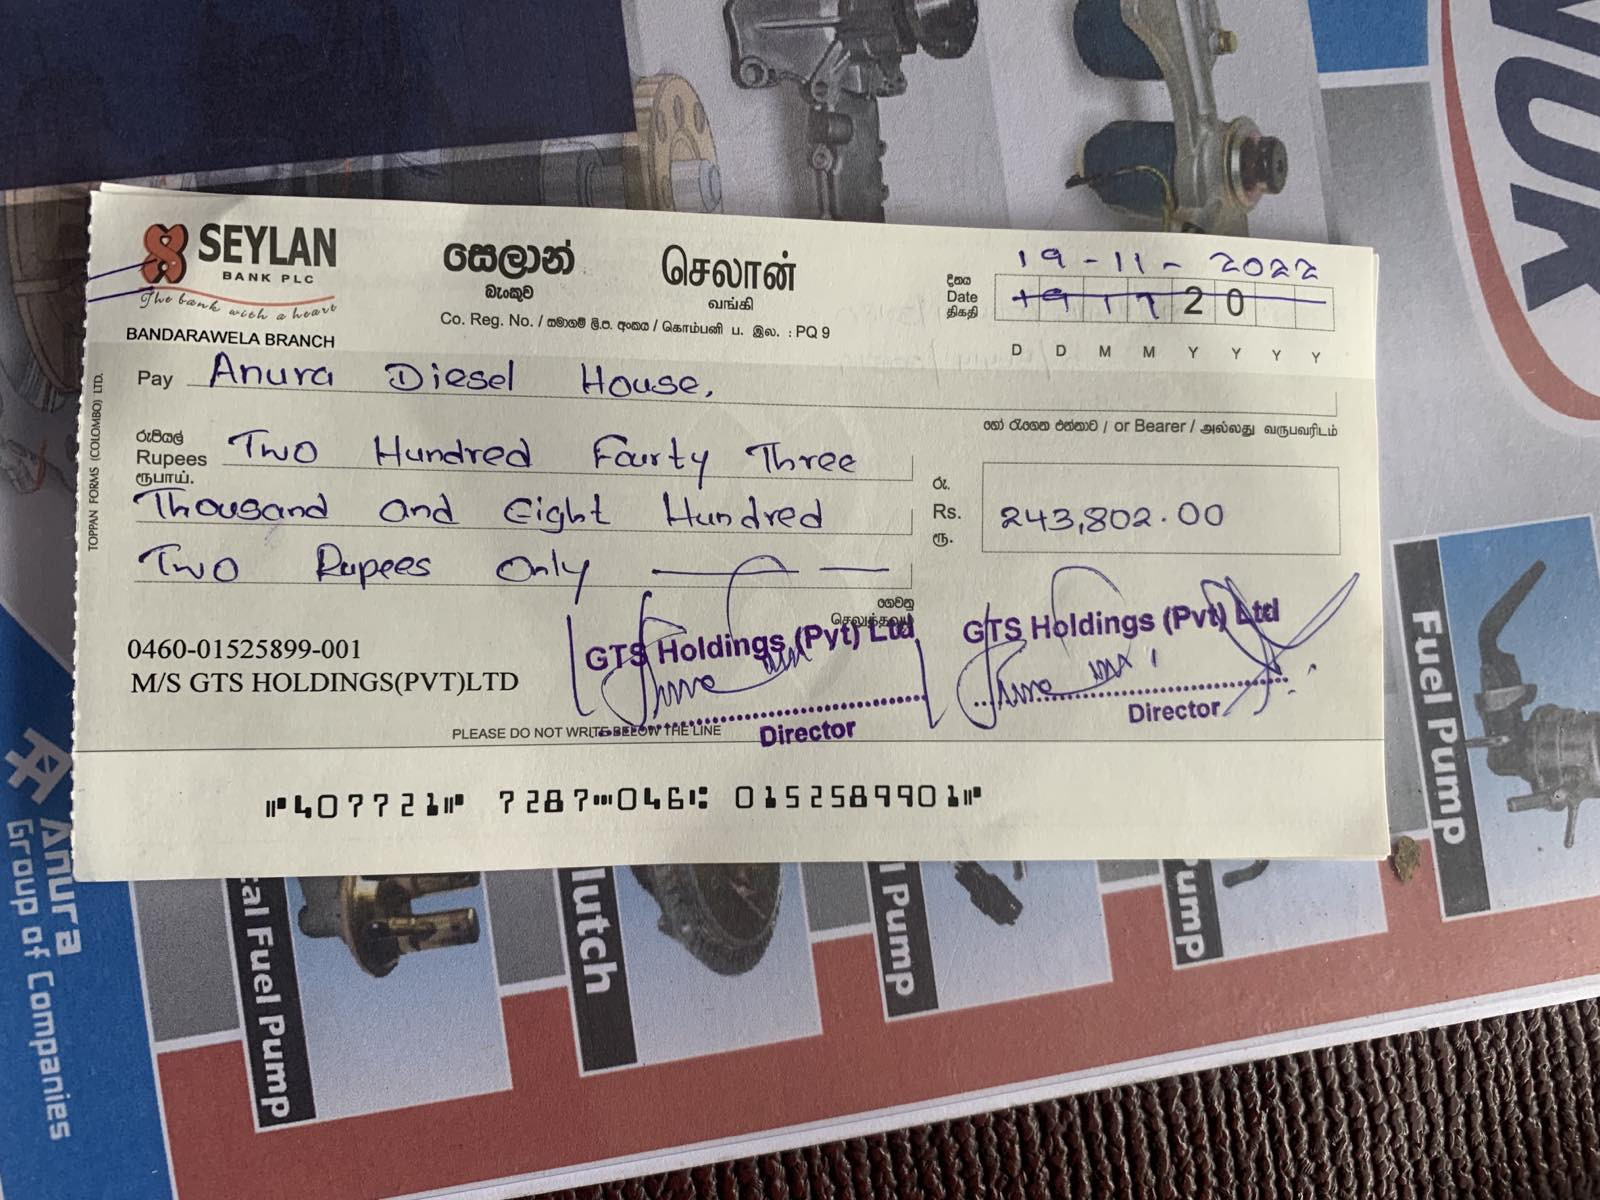 SEYLAN
BANK PLC
The bank with a heart
BANDARAWELA BRANCH
සෙලාන්
බැංකුව
செலான்
வங்கி
Co. Reg. No. / සමාගම් ලි.ප. අංකය / கொம்பனி ப. இல. : PQ 9
19-11-2022
දිනය
Date
திகதி
19 11 20
D D M M Y Y Y Y
Pay Anura Diesel House,
හෝ රැගෙන එන්නාට / or Bearer / அல்லது வருபவரிடம்
රුපියල්
Rupees
ரூபாய்.
Two Hundred Fourty Three
Thousand and Eight Hundred
Two Rupees Only
රු.
Rs.
ரூ.
243,802.00
ගෙවනු
செலுத்தவும்
0460-01525899-001
M/S GTS HOLDINGS(PVT)LTD
GTS Holdings (Pvt) Ltd
Director
GTS Holdings (Pvt) Ltd
Director
PLEASE DO NOT WRITE BELOW THE LINE
⑈407721⑈ 7287⑉046⑆ 0152589901⑈
TOPPAN FORMS (COLOMBO) LTD.
Anura
Group of Companies
al Fuel Pump
lutch
l Pump
Pump
Fuel Pump